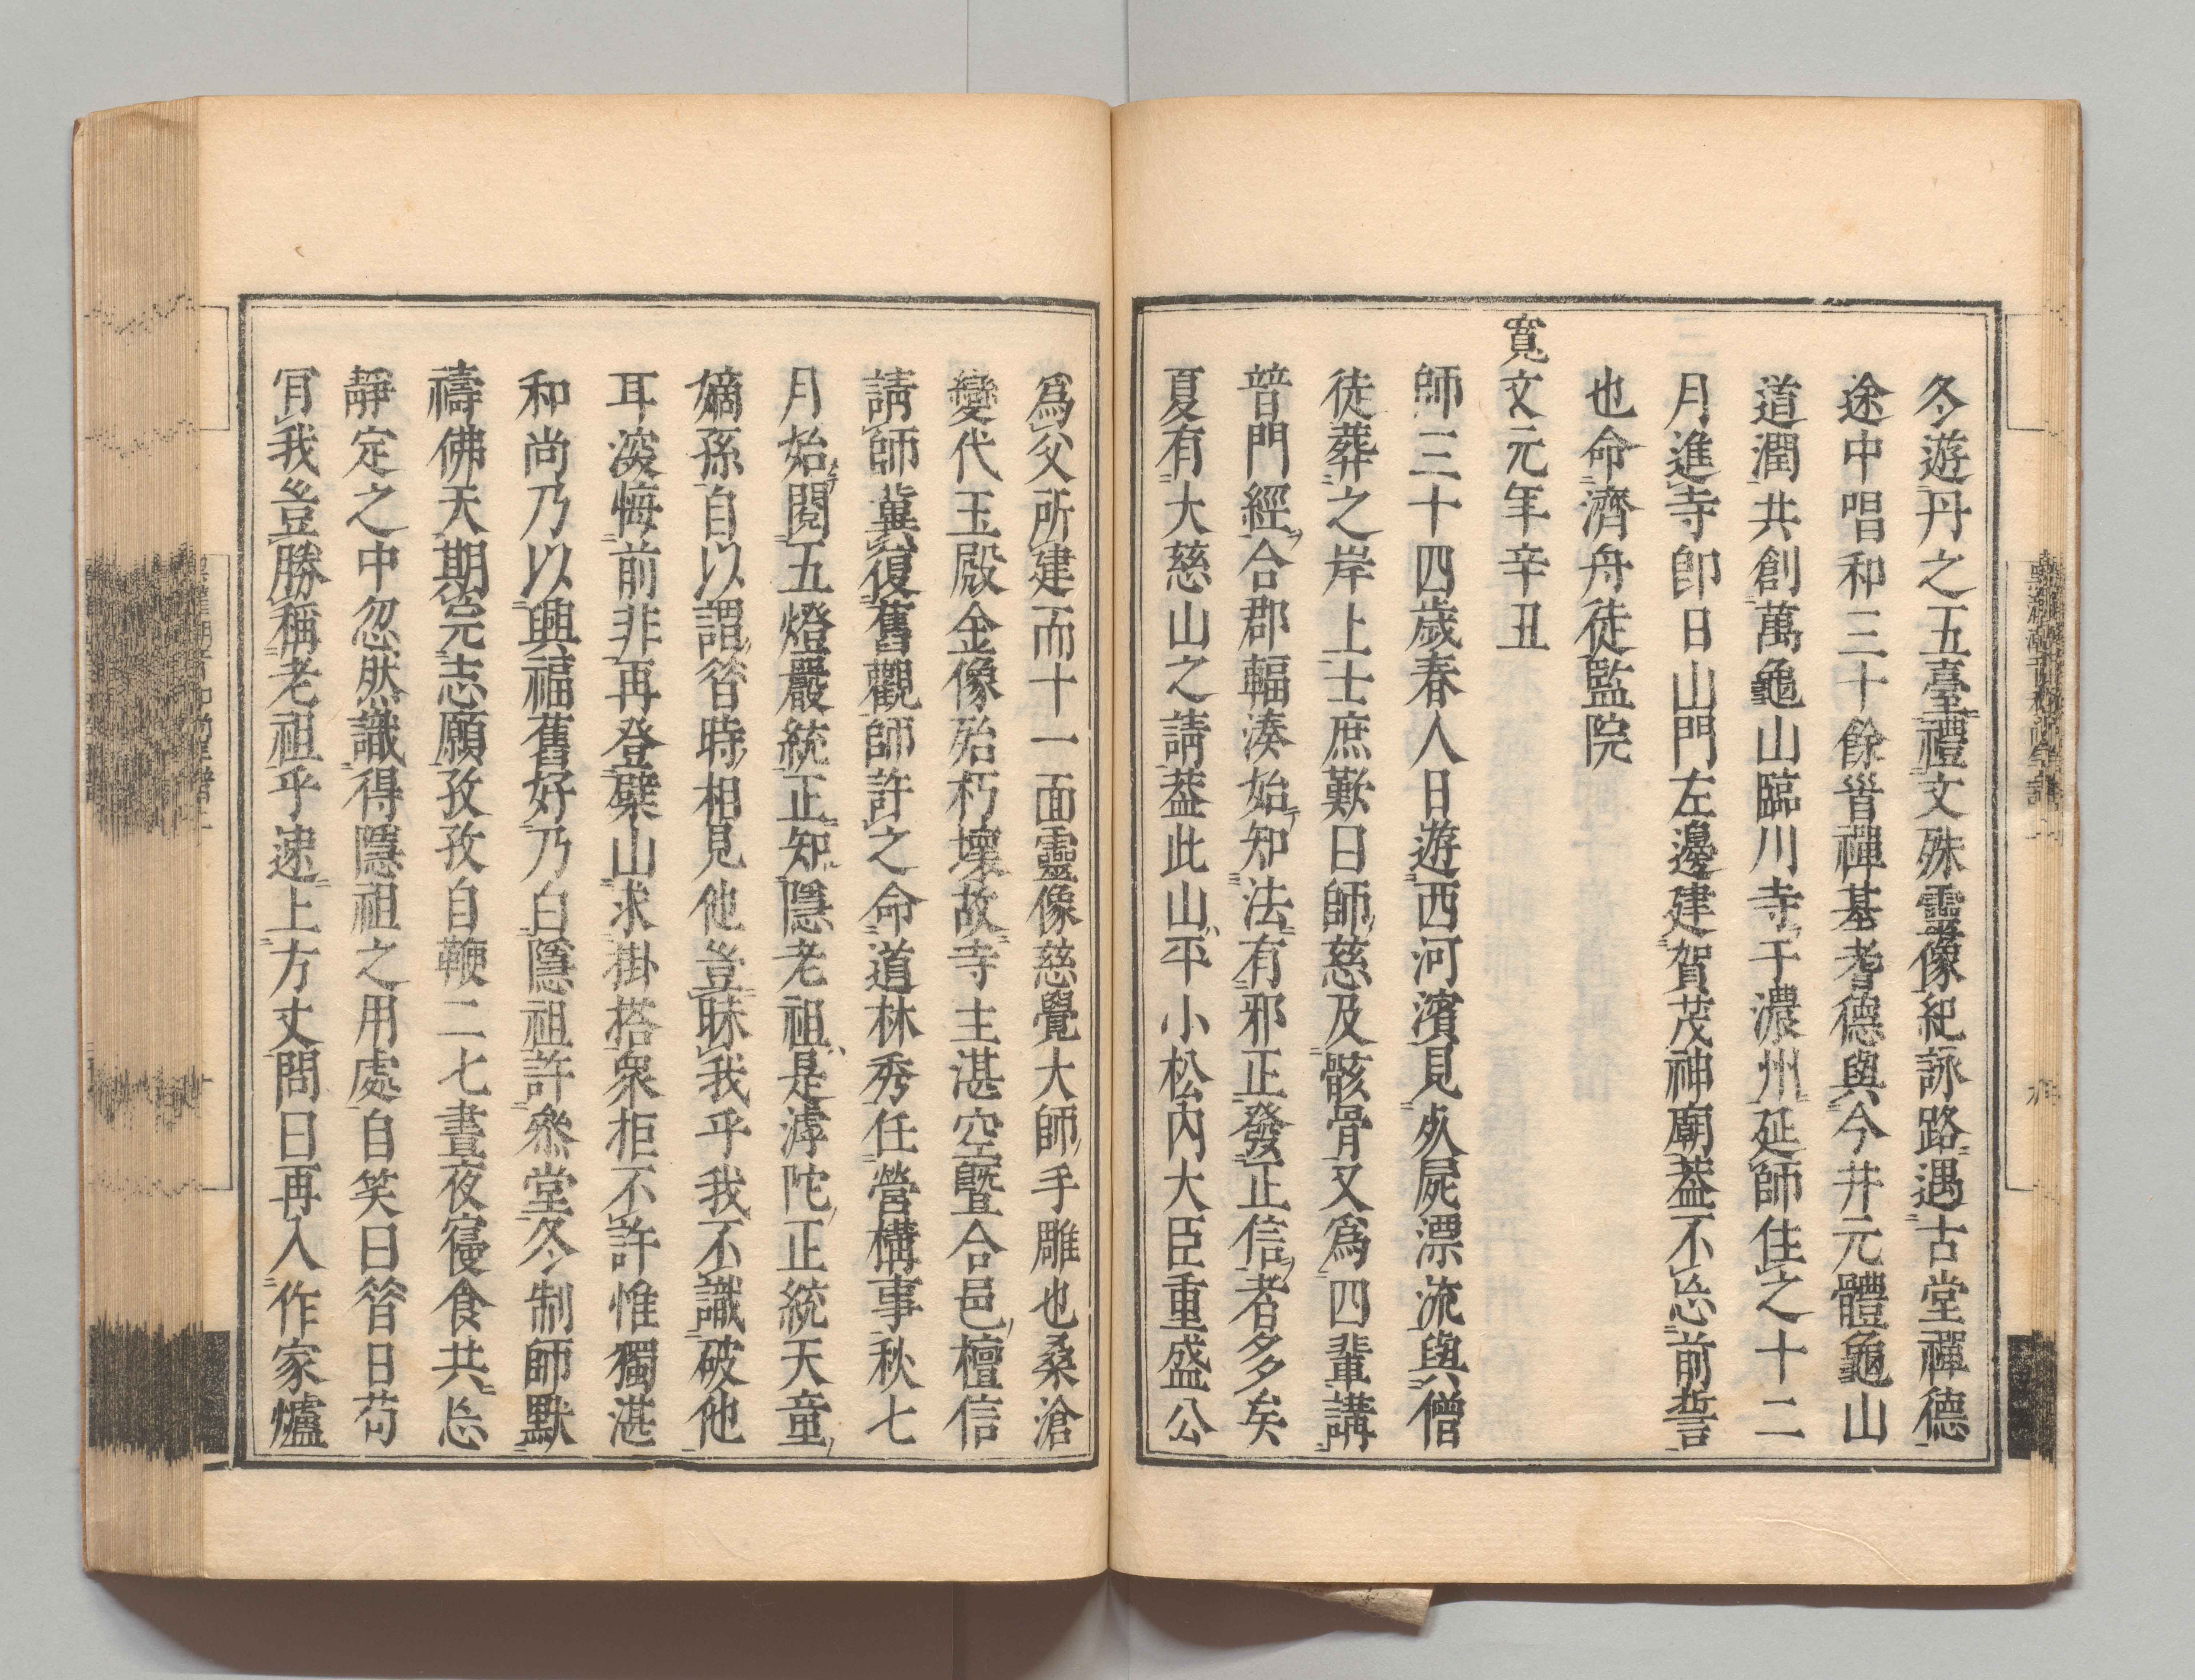 冬遊丹之五臺禮文殊靈像紀詠路遇古堂禪德
途中唱和三十餘首禪基耆德與今井元體龜山
道潤共創萬龜山臨川寺于濃州延師住之十二
月進寺卽日山門左邊建賀茂神廟葢不忘前誓
也命濟舟徒監院
寬文元年辛丑
師三十四歲春人日遊西河濱見死屍漂流與僧
徒葬之岸上士庶歎曰師慈及骸骨又爲四輩講
普門經合郡輻湊始知法有邪正發正信者多矣
夏有大慈山之請葢此山平小松內大臣重盛公
爲父所建而十一面靈像慈覺大師手雕也桑滄
變代玉殿金像殆朽壞故寺主湛空曁合邑檀信
請師冀復舊觀師許之命道林秀任營構事秋七
月始閱五燈嚴統正知隱老祖是滹陀正統天童
嫡孫自以謂昝時相見他豈昧我乎我不識破他
耳深悔前非再登檗山求掛搭衆柜不許惟獨湛
和尚乃以興福舊好乃白隱祖許叅堂冬制師默
禱佛天期完志願孜孜自鞭二七晝夜寢食共忘
靜定之中忽然識得隱祖之用處自笑曰昝日苟
肎我豈勝稱老祖乎逮上方丈問曰再入作家爐